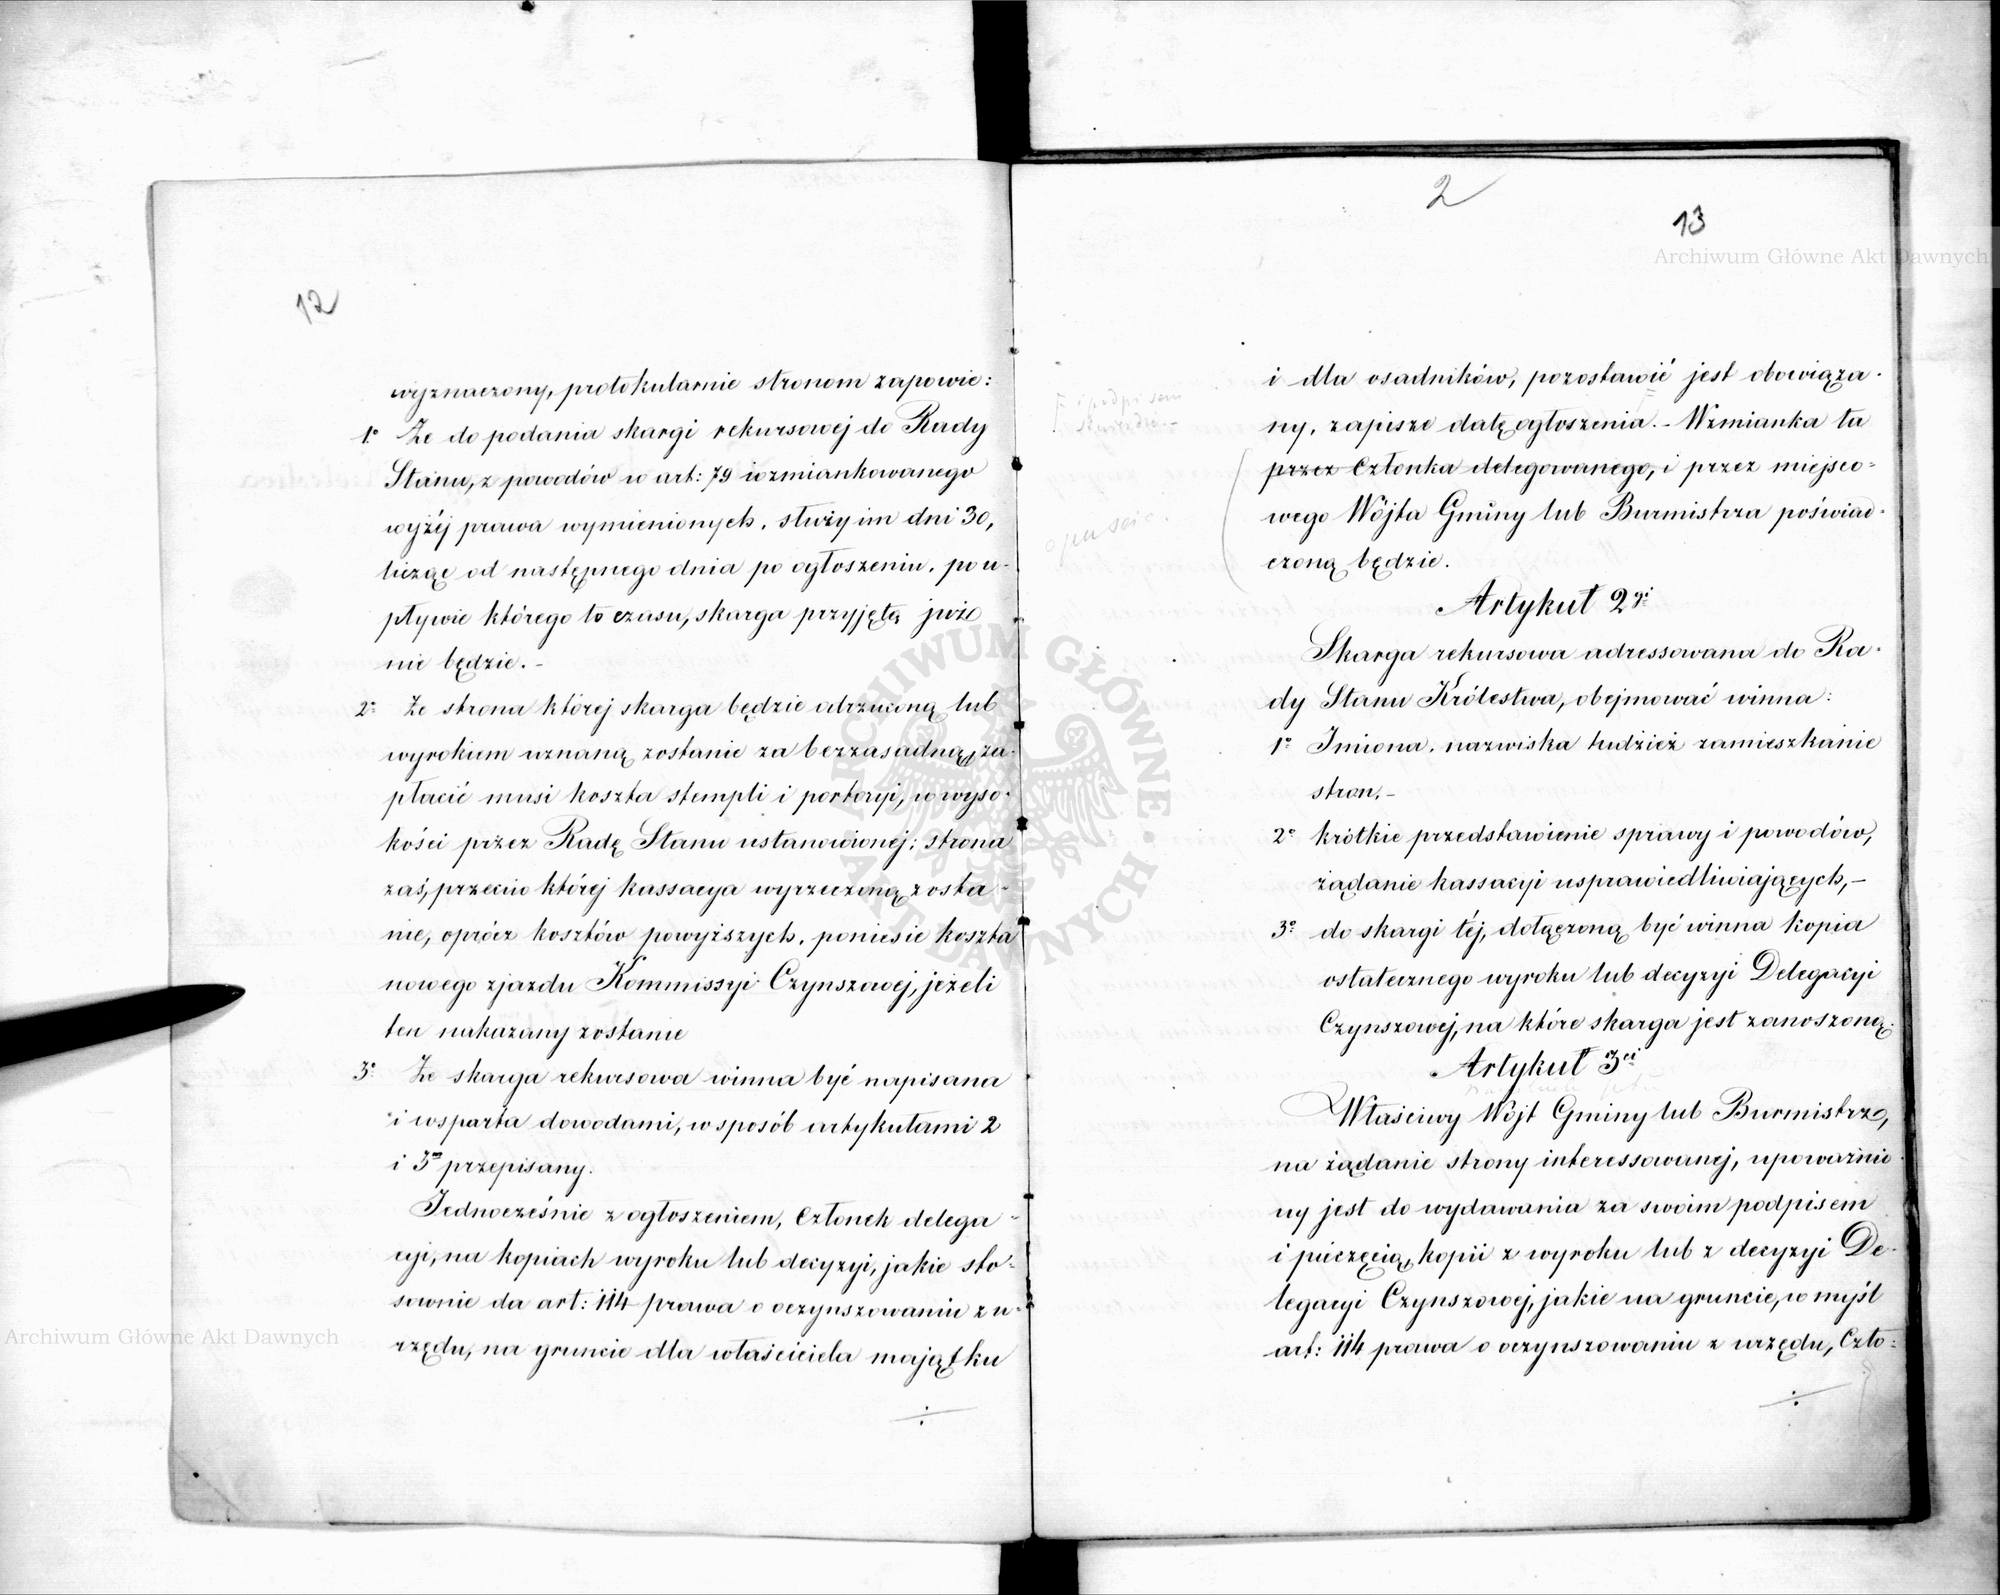 12
wyznaczony, protokularnie stronom zapowie:
1º Że do podania skargi rekursowéj do Rady
Stanu, z powodów w art: 79 wzmiankowanego
wyżéj prawa wymienionych, służy im dni 30,
licząc od następnego dnia po ogłoszeniu, po u-
pływie którego to czasu, skarga przyjętą już
nie będzie.-
2º Że strona któréj skarga będzie odrzuconą lub
wyrokiem uznaną zostanie za bezzasadną, za-
płacić musi koszta stempli i portoryi, w wyso-
kości przez Radę Stanu ustanowionéj; strona
zaś, przeciw któréj kassacya wyrzeczoną zosta-
nie, oprócz kosztów powyższych, poniesie koszta
nowego zjazdu Kommissyi Czynszowéj, jeżeli
ten nakazany zostanie
3º Że skarga rekursowa winna być napisana
i wsparta dowodami, w sposób artykułami 2
i 3m przepisany.
Jednocześnie z ogłoszeniem, Członek delega-
cyi, na kopiach wyroku lub decyzyi, jakie sto-
sownie do art: 114 prawa o oczynszowaniu z u-
rzędu, na gruncie dla właściciela majątku
2
13
i podpisem
opuścić.
i dla osadników, pozostawić jest obowiąza-
ny, zapisze datę ogłoszenia.- Wzmianka ta
przez Członka delegowanego, i przez miejsco-
wego Wójta Gminy lub Burmistrza poświad-
czoną będzie.
Artykuł 2gi
Skarga rekursowa adressowana do Ra-
dy Stanu Królestwa, obejmować winna:
1º Imiona, nazwiska tudzież zamieszkanie
stron,-
2º krótkie przedstawienie sprawy i powodów,
żądanie kassacyi usprawiedliwiających,-
3º do skargi téj, dołączoną być winna kopia
ostatecznego wyroku lub decyzyi Delegacyi
Czynszowéj, na które skarga jest zanoszoną.
Artykuł 3ci
Właściwy Wójt Gminy lub Burmistrz,
na żądanie strony interessowanéj, upoważnio-
ny jest do wydawania za swoim podpisem
i pieczęcią, kopii z wyroku lub z decyzyi De-
legacyi Czynszowéj, jakie na gruncie, w myśl
art: 114 prawa o oczynszowaniu z urzędu, Czło-
Archiwum Główne Akt Dawnych
Archiwum Główne Akt Dawnych
ARCHIWUM GŁÓWNE · AKT DAWNYCH ·